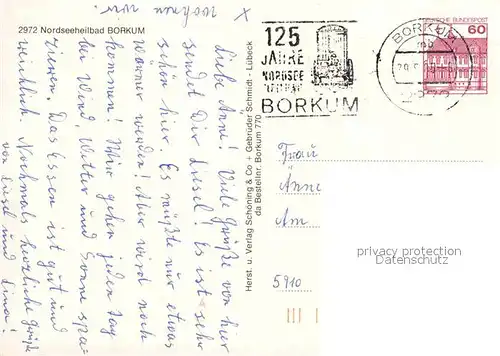 x wohnen wir.
2972 Nordseeheilbad BORKUM
Liebe Änne! Viele Grüße von hier
sendet Dir Liesel! Es ist sehr
schön hier. Es müßte nur etwas
wärmer werden! Aber wird noch
kommen! Wir gehen jeden Tag
bei Wind, Wetter und Sonne spa-
zieren. Das Essen ist gut und
reichlich. Nochmals herzliche Grüße
von Liesel und Lina!
Herst. u. Verlag Schöning & Co + Gebrüder Schmidt - Lübeck
da Bestellnr. Borkum 770
125
JAHRE
NORDSEE
HEILBAD
BORKUM
BORKUM
DEUTSCHE BUNDESPOST
60
Frau
Änne
Am
5910
privacy protection
(c) ansichtskarten-center.de